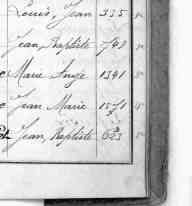 Louis, Jean 335
Jean, Baptiste 740
Marie Ange 1341
Jean Marie 1571
Jean, Baptiste 623